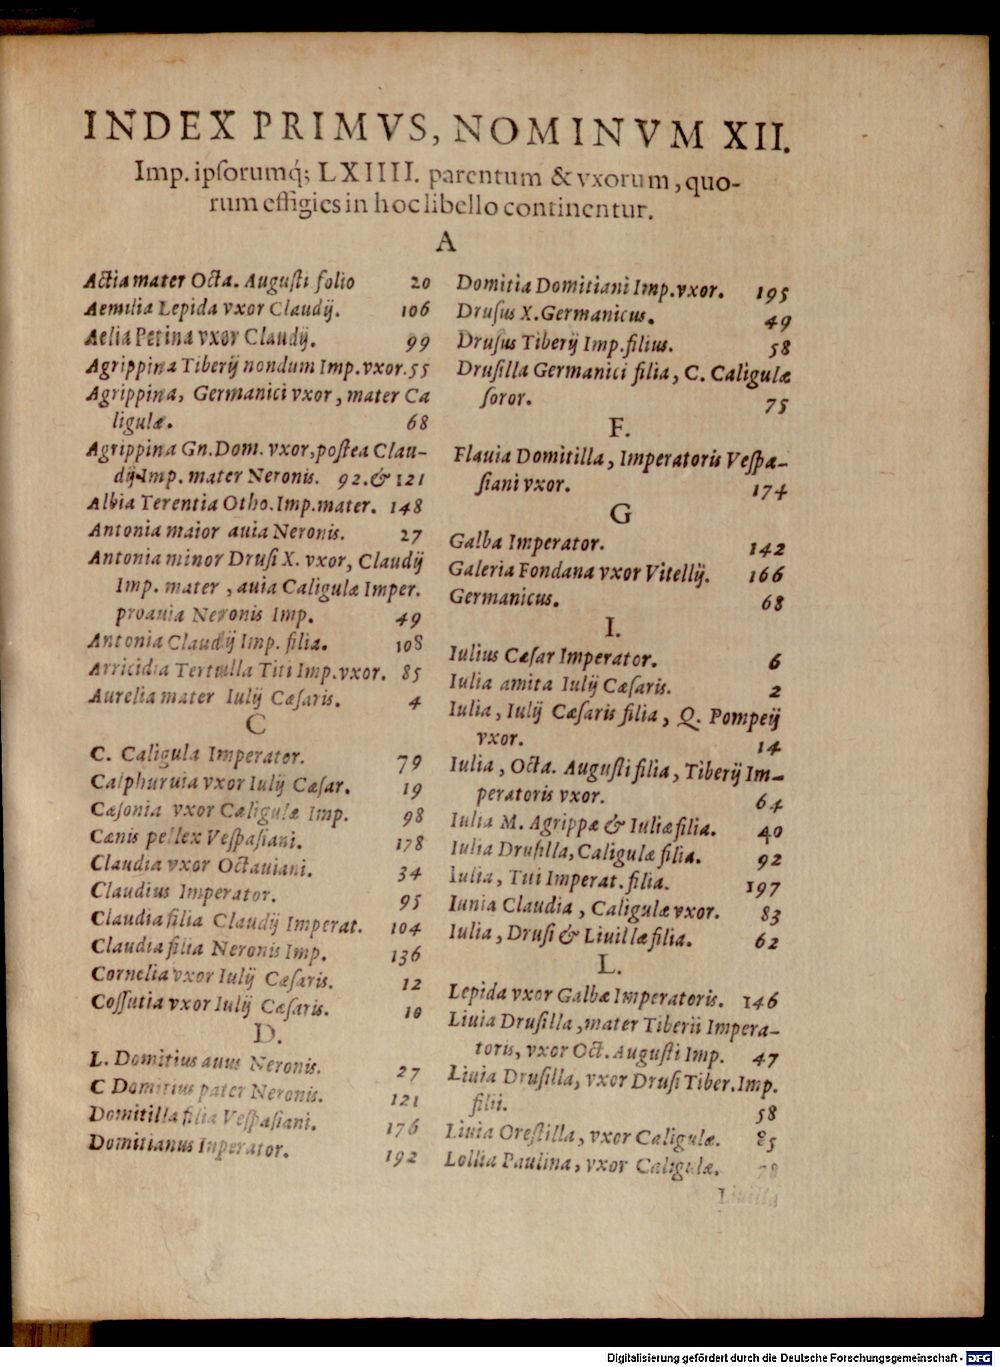 INDEX PRIMVS, NOMINVM XII.
Imp. ipſorumq́; LXIIII. parentum & vxorum, quo-
rum effigies in hoc libello continentur.
A
Actia mater Octa. Auguſti folio 20
Aemilia Lepida vxor Claudij. 106
Aelia Petina vxor Claudij. 99
Agrippina Tiberij nondum Imp. vxor. 55
Agrippina, Germanici vxor, mater Ca
ligulæ. 68
Agrippina Gn. Dom. vxor, poſtea Clau-
dij Imp. mater Neronis. 92. & 121
Albia Terentia Otho. Imp. mater. 148
Antonia maior auia Neronis. 27
Antonia minor Druſi X. vxor, Claudij
Imp. mater, auia Caligulæ Imper.
proauia Neronis Imp. 49
Antonia Claudij Imp. filia. 108
Arricidia Tertulla Titi Imp. vxor. 85
Aurelia mater Iulij Cæſaris. 4
C
C. Caligula Imperator. 79
Calphuruia vxor Iulij Cæſar. 19
Cæſonia vxor Caligulæ Imp. 98
Cænis pellex Veſpaſiani. 178
Claudia vxor Octauiani. 34
Claudius Imperator. 95
Claudia filia Claudij Imperat. 104
Claudia filia Neronis Imp. 136
Cornelia vxor Iulij Cæſaris. 12
Coſſutia vxor Iulij Cæſaris. 10
D.
L. Domitius auus Neronis. 27
C Domitius pater Neronis. 121
Domitilla filia Veſpaſiani. 176
Domitianus Inperator. 192
Domitia Domitiani Imp. vxor. 195
Druſus X. Germanicus. 49
Druſus Tiberij Imp. filius. 58
Druſilla Germanici filia, C. Caligulæ
ſoror. 75
F.
Flauia Domitilla, Imperatoris Veſpa-
ſiani vxor. 174
G
Galba Imperator. 142
Galeria Fondana vxor Vitellij. 166
Germanicus. 68
I.
Iulius Cæſar Imperator. 6
Iulia amita Iulij Cæſaris. 2
Iulia, Iulij Cæſaris filia, Q. Pompeij
vxor. 14
Iulia, Octa. Auguſti filia, Tiberij Im-
peratoris vxor. 64
Iulia M. Agrippæ & Iuliæ filia. 40
Iulia Druſilla, Caligulæ filia. 92
Iulia, Titi Imperat. filia. 197
Iunia Claudia, Caligulæ vxor. 83
Iulia, Druſi & Liuillæ filia. 62
L.
Lepida vxor Galbæ Imperatoris. 146
Liuia Druſilla, mater Tiberii Impera-
toris, vxor Oct. Auguſti Imp. 47
Liuia Druſilla, vxor Druſi Tiber. Imp.
filii. 58
Liuia Oreſtilla, vxor Caligulæ. 85
Lollia Paulina, vxor Caligulæ. 78
Liuilla
Digitalisierung gefördert durch die Deutsche Forschungsgemeinschaft - DFG